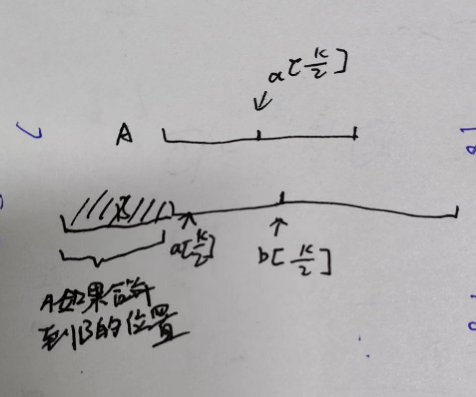 a[k/2]
A
a[k/2]
b[k/2]
A如果合并
到B的位置